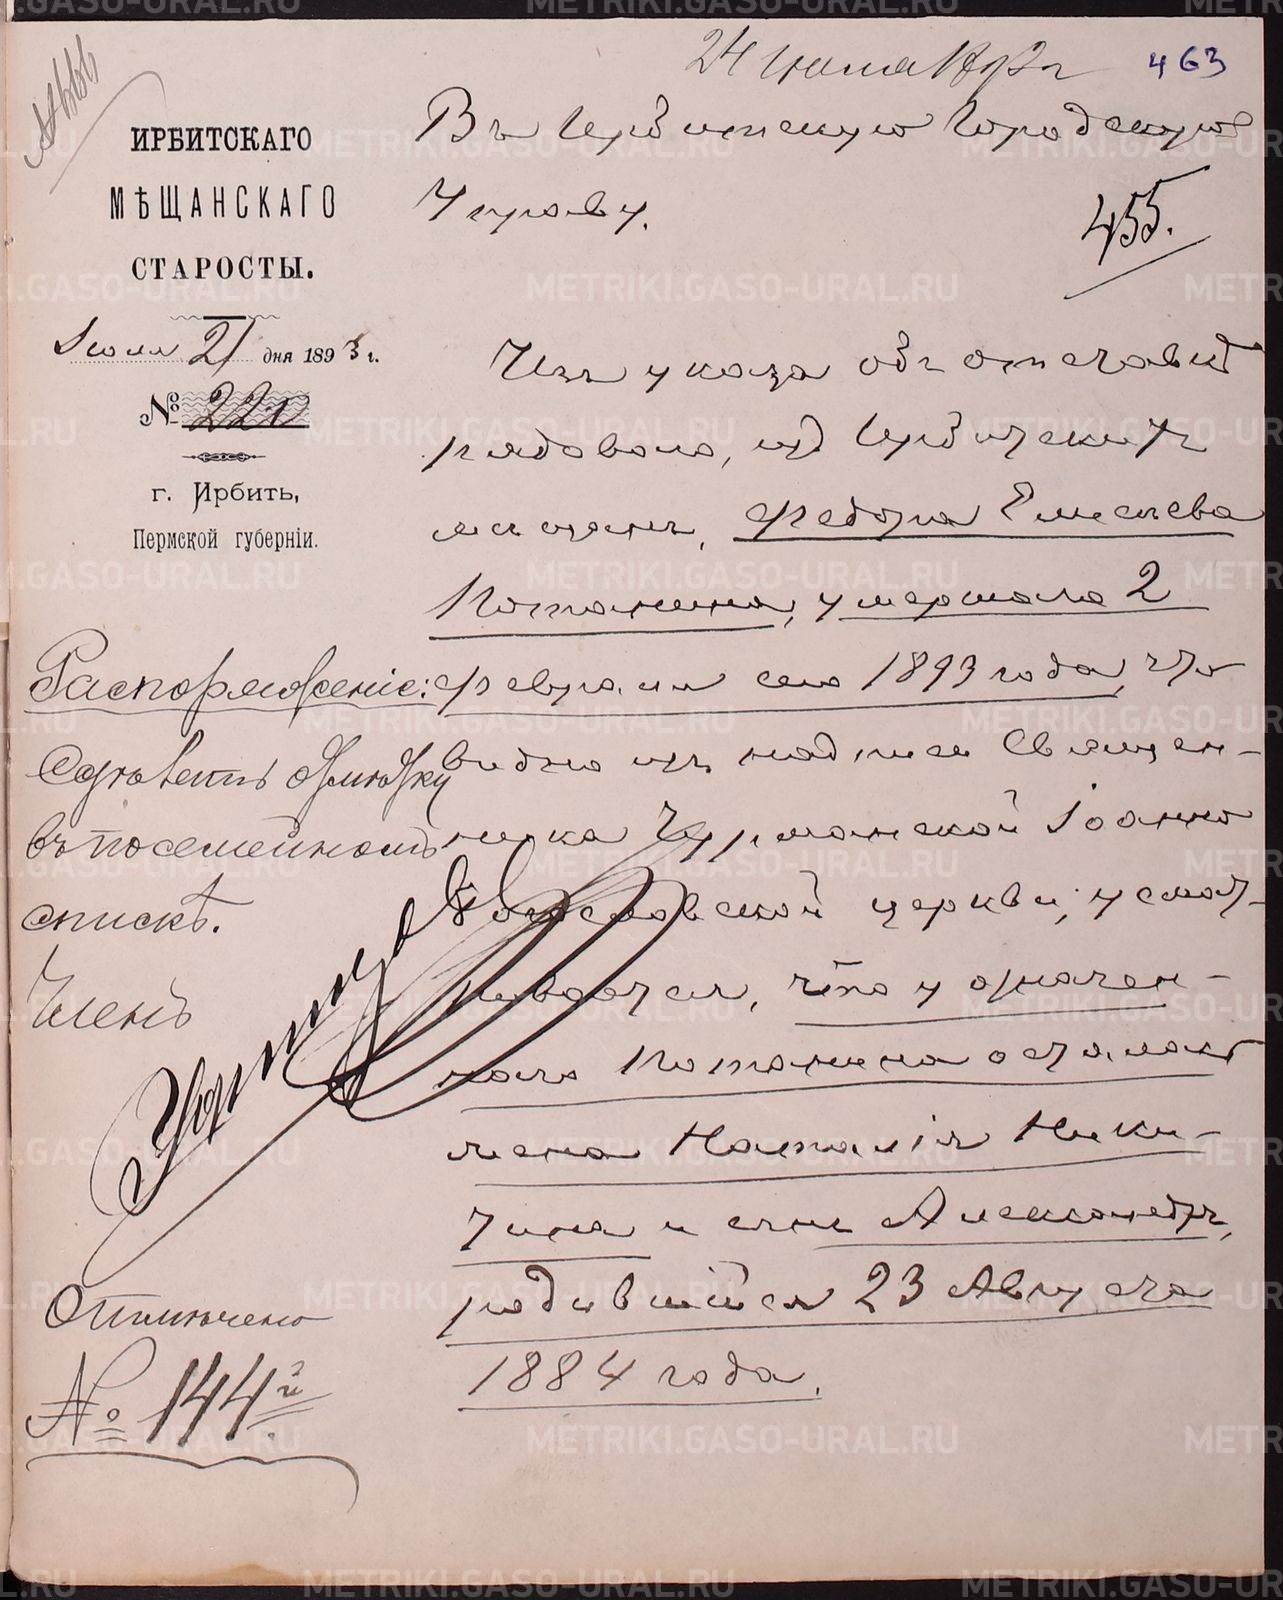 24 июля 1893 г
463
ИРБИТСКАГО
МѢЩАНСКАГО
СТАРОСТЫ.
Іюля 21 дня 1893 г.
№ 220
г. Ирбить,
Пермской губерніи.
Въ Ирбитскую Городскую
Управу.
455.
Изъ указа объ отставкѣ
рядоваго, изъ Ирбитскихъ
мѣщанъ, Федора Елисѣева
Потанина, умершаго 2
февраля сего 1893 года, что
видно изъ надписи Священ-
ника Чурманской Іоанно
Богословской церкви, усмат-
ривается, что у означен-
наго Потанина осталась
жена Наталія Ники-
тина и сынъ Александръ,
родившійся 23 Августа
1884 года.
Распоряженіе:
Сдѣлать отмѣтку
въ посемейномъ
спискѣ.
Членъ
Отмѣчено
№ 144й
METRIKI.GASO-URAL.RU